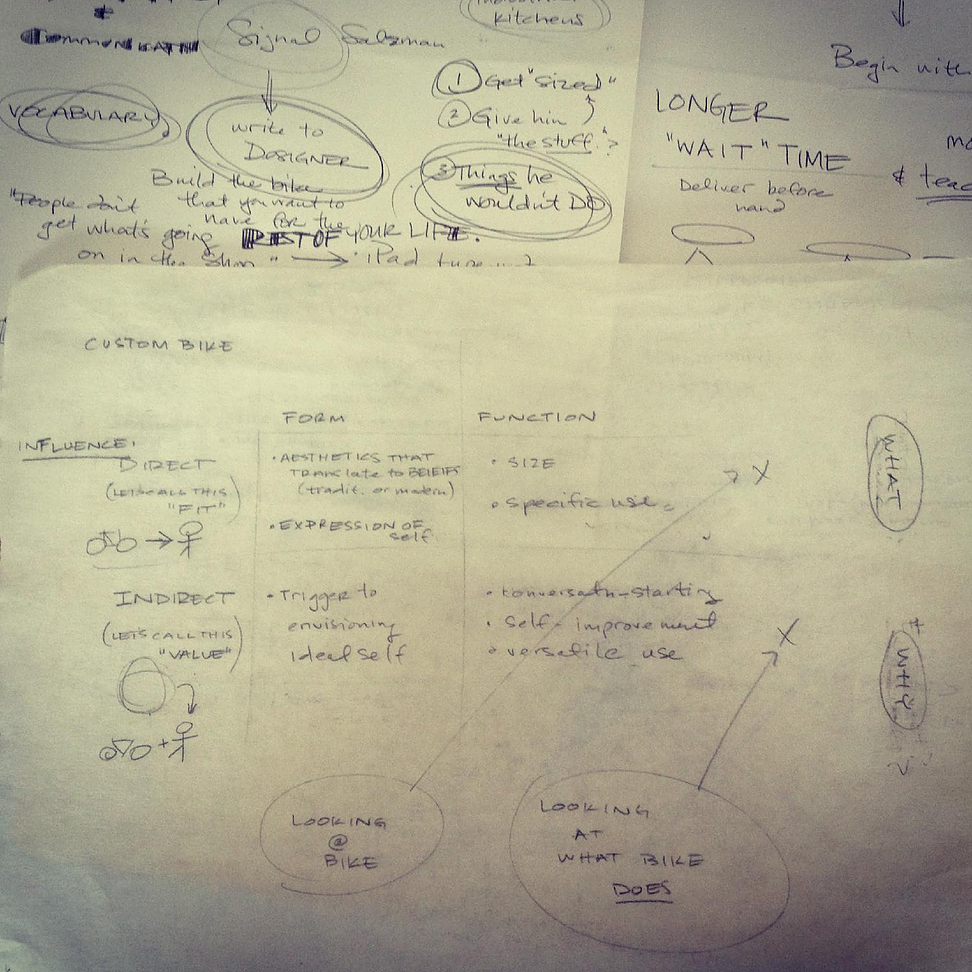 Signal Salzman
kitchens
VOCABULARY
write to
DESIGNER
Build the bike
that you want to
have for the
REST OF YOUR LIFE.
"People don't
get what's going
on in the
iPad
① Get "sized"
② Give him
"the stuff"?
③ Things he
wouldn't DO
Begin with
LONGER
"WAIT" TIME
Deliver before
hand
& teac
CUSTOM BIKE
FORM
FUNCTION
INFLUENCE:
DIRECT
(LET'S CALL THIS
"FIT")
• AESTHETICS THAT
TRANSlate to BELIEFS
(tradit. or modern)
• EXPRESSION OF
self
• SIZE
• specific use
X
WHAT
INDIRECT
(LET'S CALL THIS
"VALUE")
• Trigger to
envisioning
ideal self
• conversath-starting
• self-improvement
• versatile use
X
WHY
LOOKING
@
BIKE
LOOKING
AT
WHAT BIKE
DOES